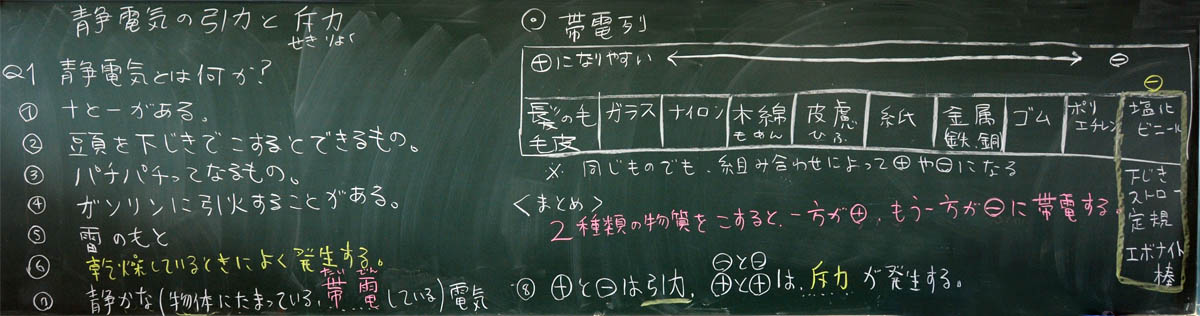 静電気の引力と斥力
せきりょく
Q1 静電気とは何か?
① +と-がある。
② 頭を下じきでこするとできるもの。
③ パチパチってなるもの。
④ ガソリンに引火することがある。
⑤ 雷のもと
⑥ 乾燥しているときによく発生する。
たい でん
⑦ 静かな(物体にたまっている、帯電している)電気
⊙ 帯電列
⊕になりやすい ⟷ ⊖
⊖
髪の毛 毛皮
ガラス
ナイロン
木綿 もめん
皮膚 ひふ
紙
金属 鉄、銅
ゴム
ポリエチレン
塩化ビニール
下じき
ストロー
定規
エボナイト棒
※ 同じものでも、組み合わせによって⊕や⊖になる
<まとめ>
2種類の物質をこすると、一方が⊕、もう一方が⊖に帯電する。
⊖と⊖
⑧ ⊕と⊖は引力、⊕と⊕は、斥力が発生する。